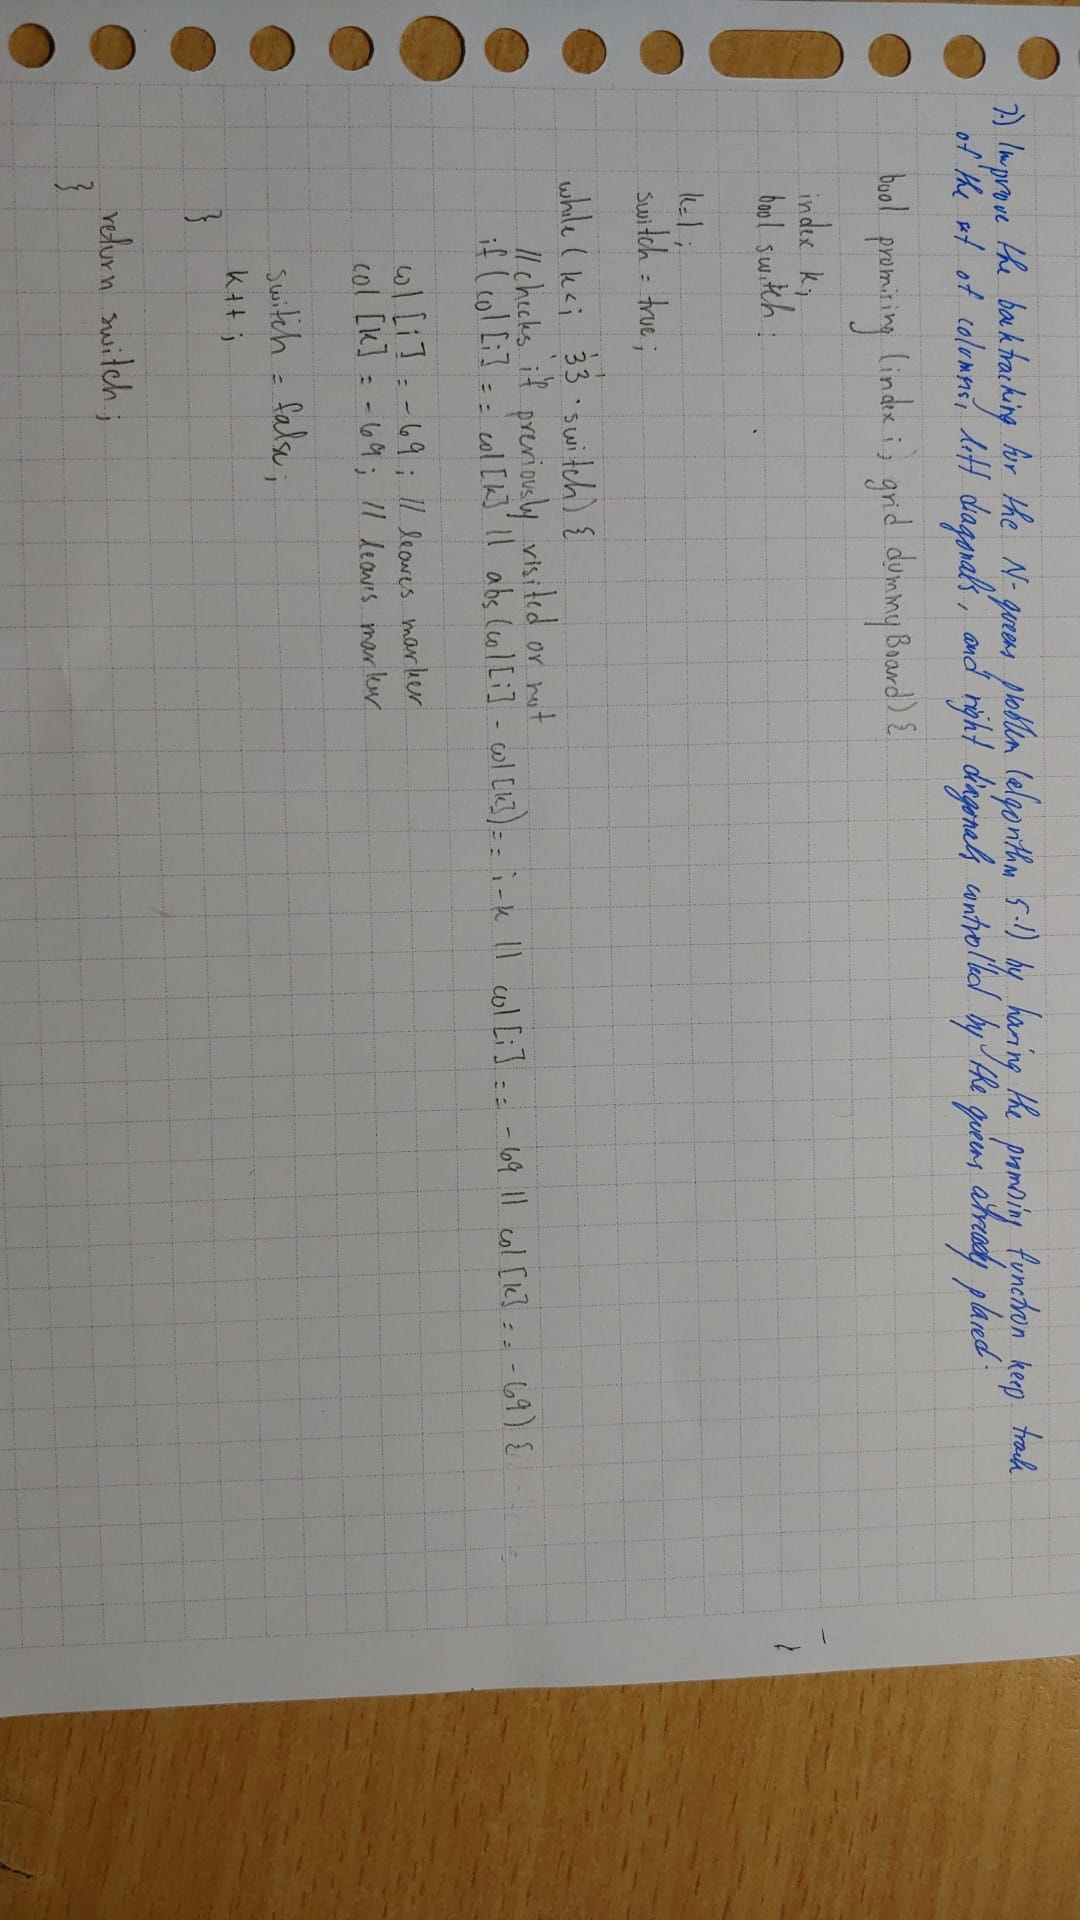 7.) Improve the backtracking for the N-queens problem (algorithm 5.1) by having the promising function keep track
of the set of columns, left diagonals, and right diagonals controlled by the queens already placed.
bool promising (index i, grid dummyBoard) {
index k;
bool switch;
k=1;
switch = true;
while (k<i && switch) {
// checks if previously visited or not
if (col [i] == col [k] || abs (col [i] - col [k]) == i-k || col [i] == -69 || col [k] == -69) {
col [i] = -69; // leaves marker
col [k] = -69; // leaves marker
switch = false;
k++;
}
return switch;
}